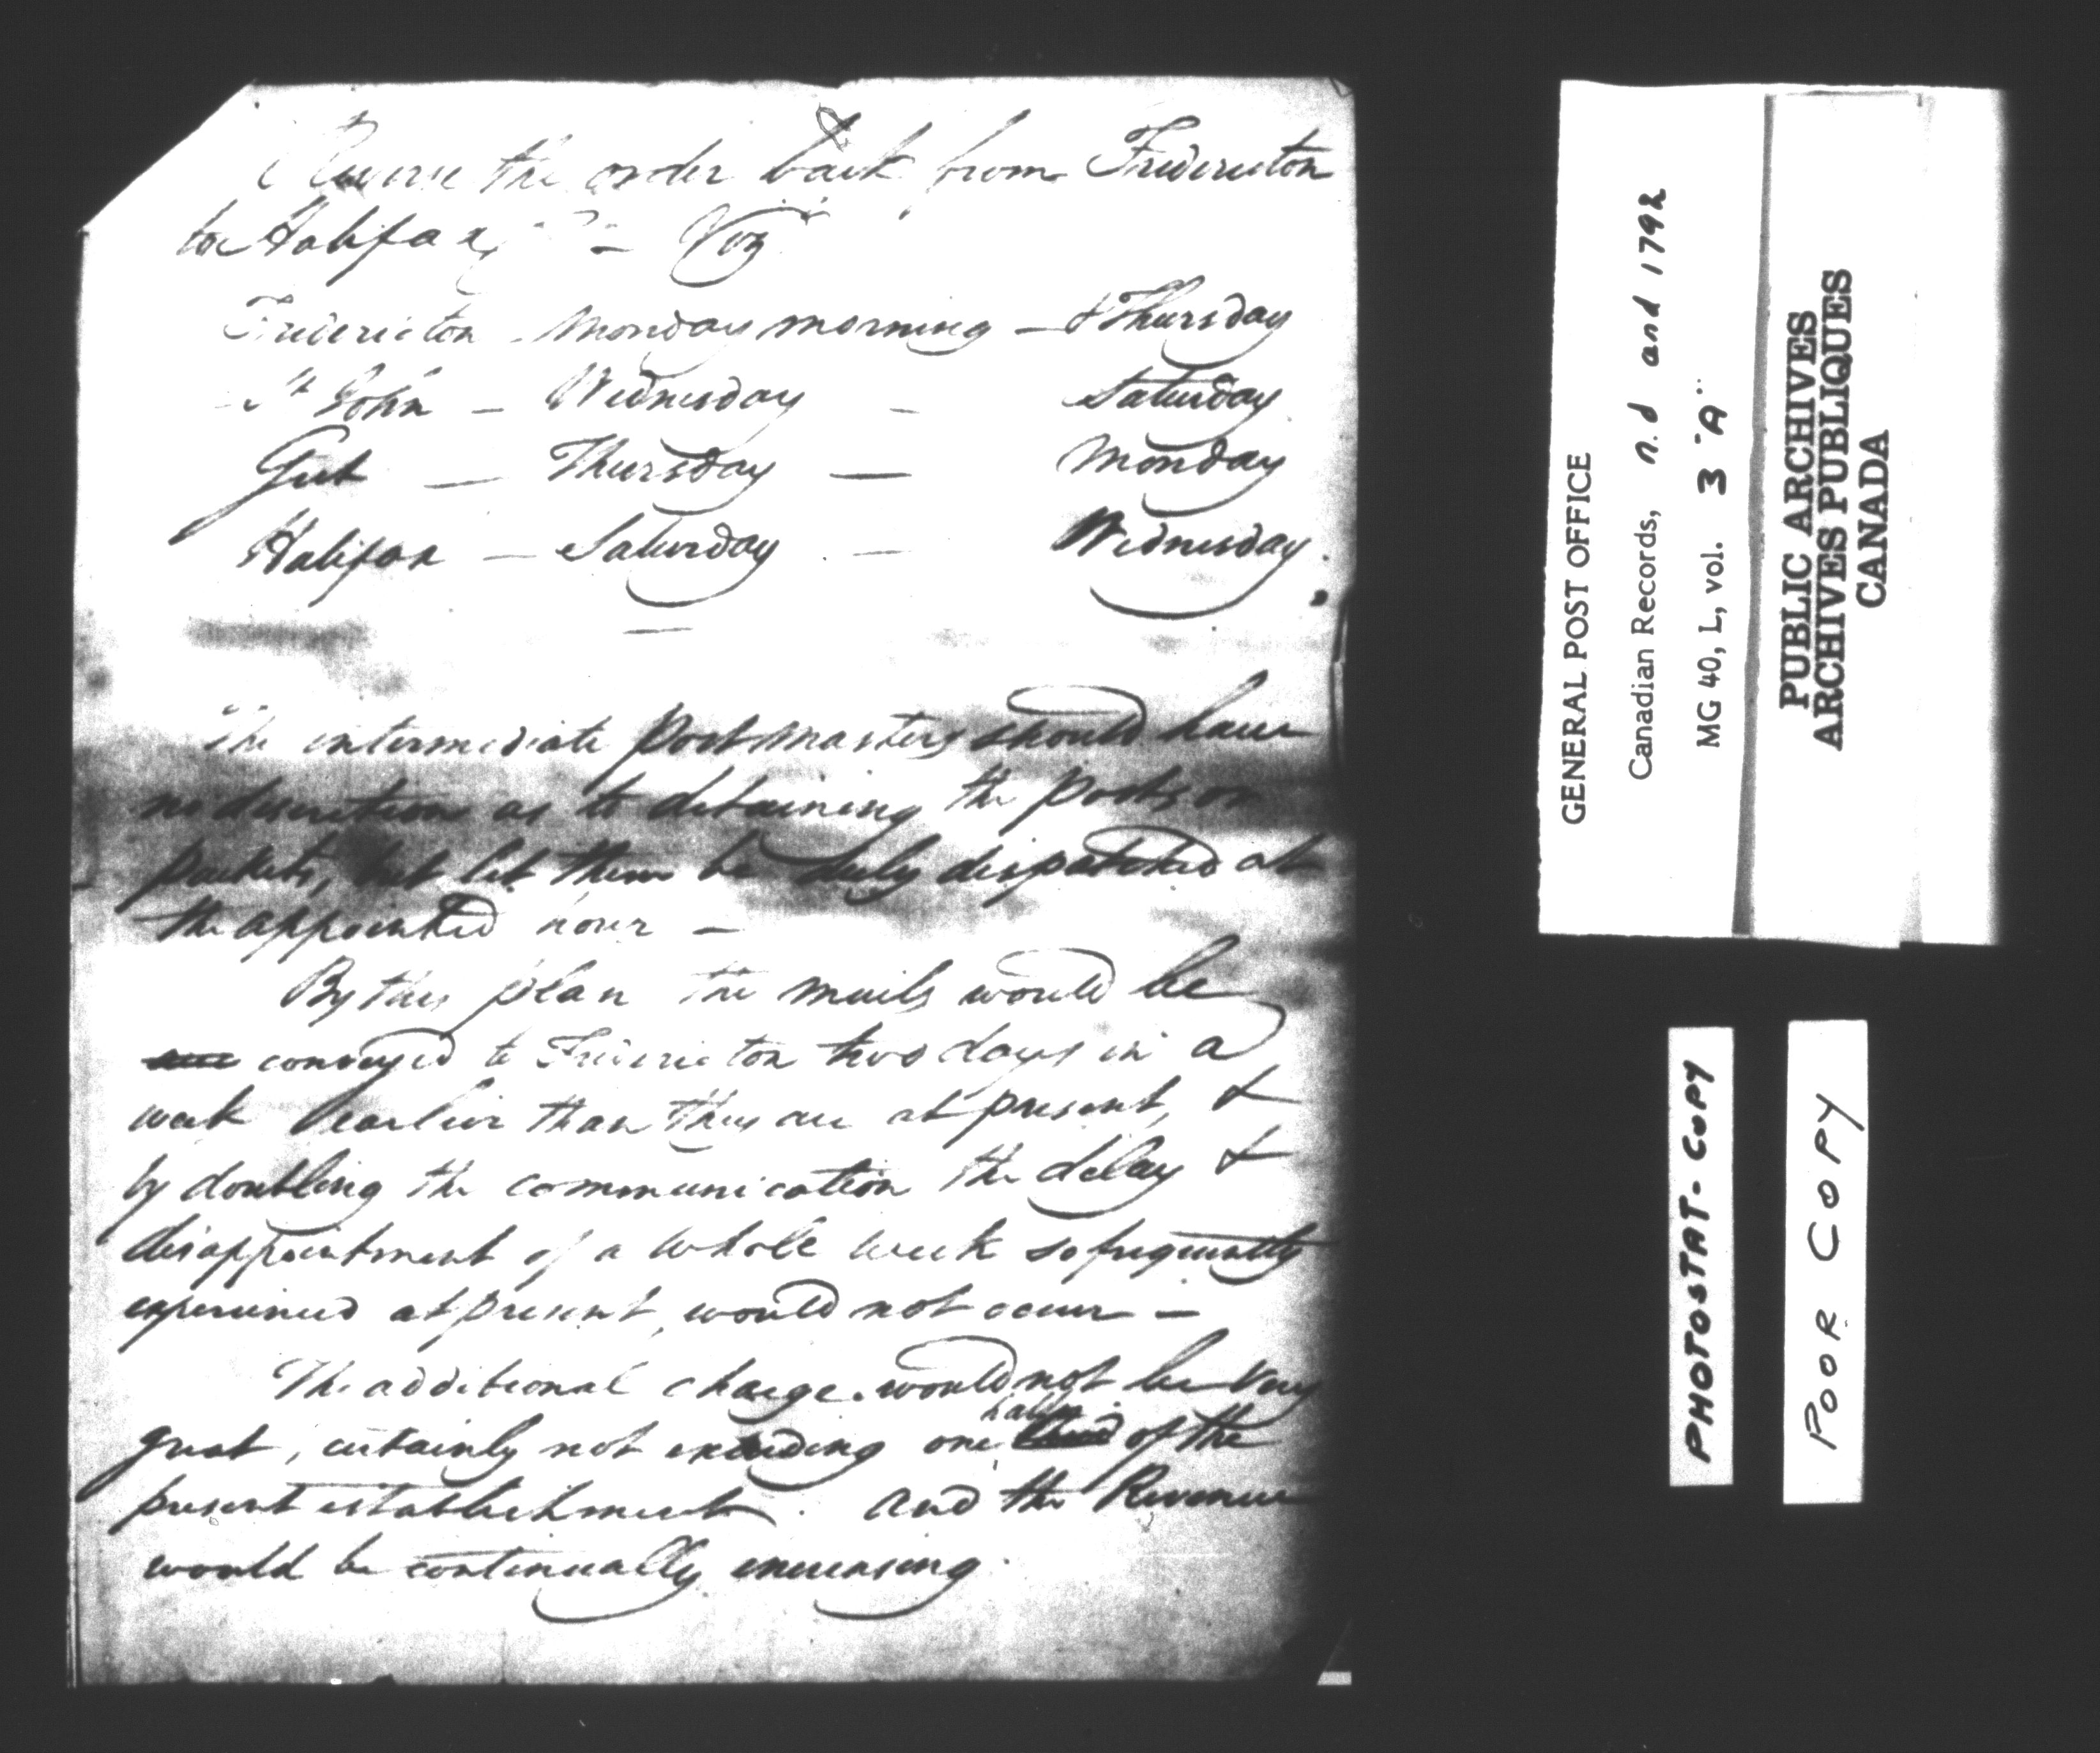 Reverse the order back from Fredericton
to Halifax, - Viz
Fredericton - Monday morning - & Thursday
St John - Wednesday - Saturday
Gut - Thursday - Monday
Halifax - Saturday - Wednesday.
The intermediate Postmasters should have
no discretion as to detaining the Posts or
packets, but let them be duly dispatched at
the appointed hour -
By this plan the mails would be
conveyed to Fredericton two days in a
week earlier than they are at present, &
by doubling the communication the delay &
disappointment of a whole week so frequently
experienced at present, would not occur -
The additional charge would not be very
great, certainly not exceeding one half of the
present establishment. and the Revenue
would be continually encreasing.
GENERAL POST OFFICE
Canadian Records, n.d and 1792
MG 40, L, vol. 3 "A"
PUBLIC ARCHIVES
ARCHIVES PUBLIQUES
CANADA
PHOTOSTAT-COPY
POOR COPY